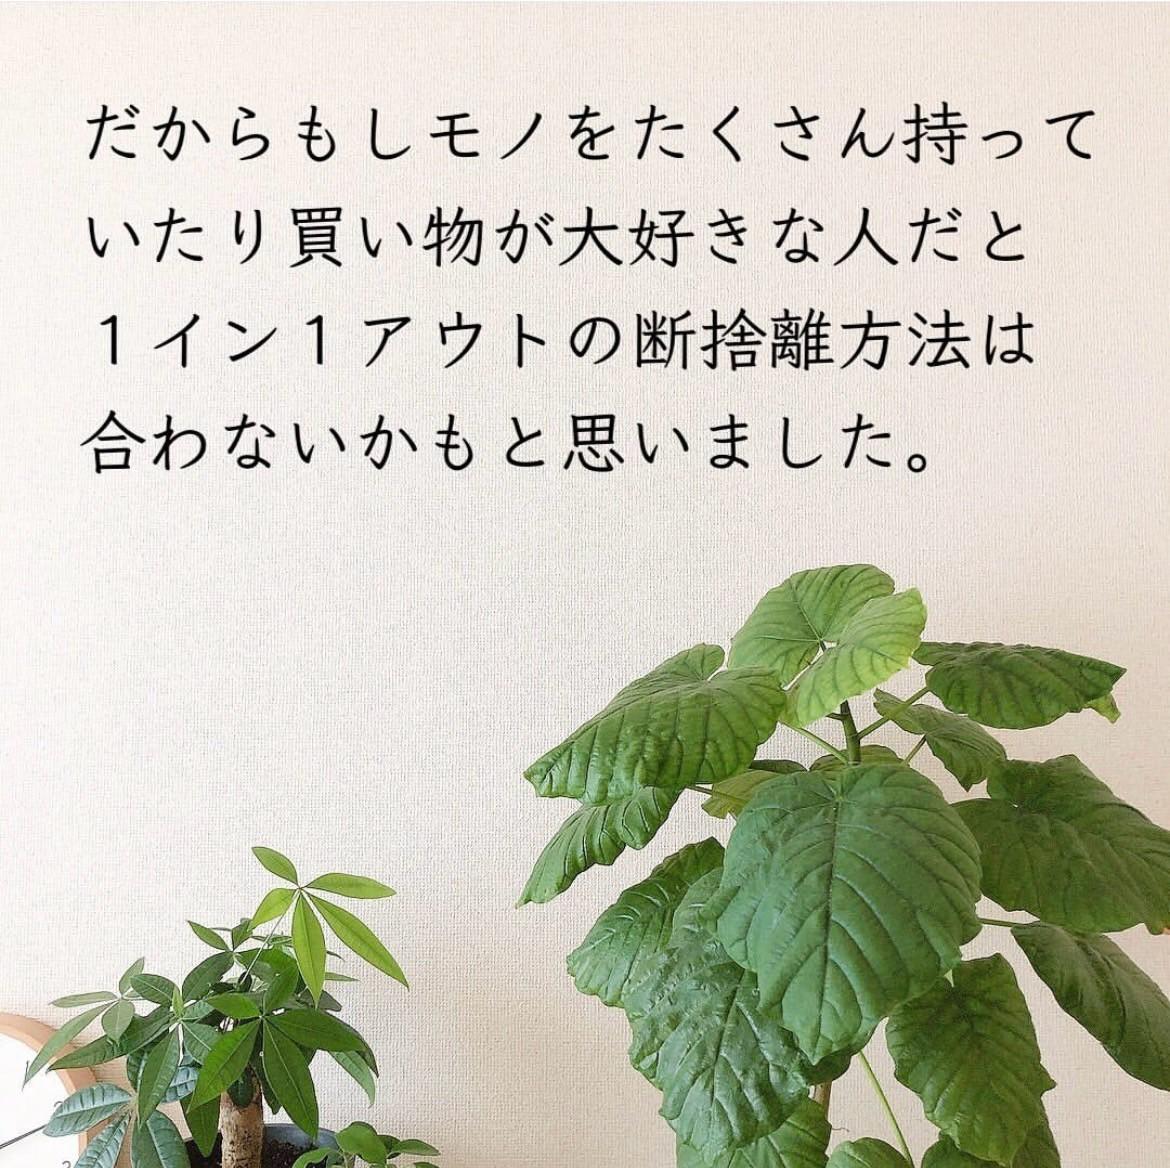 だからもしモノをたくさん持って
いたり買い物が大好きな人だと
１イン１アウトの断捨離方法は
合わないかもと思いました。